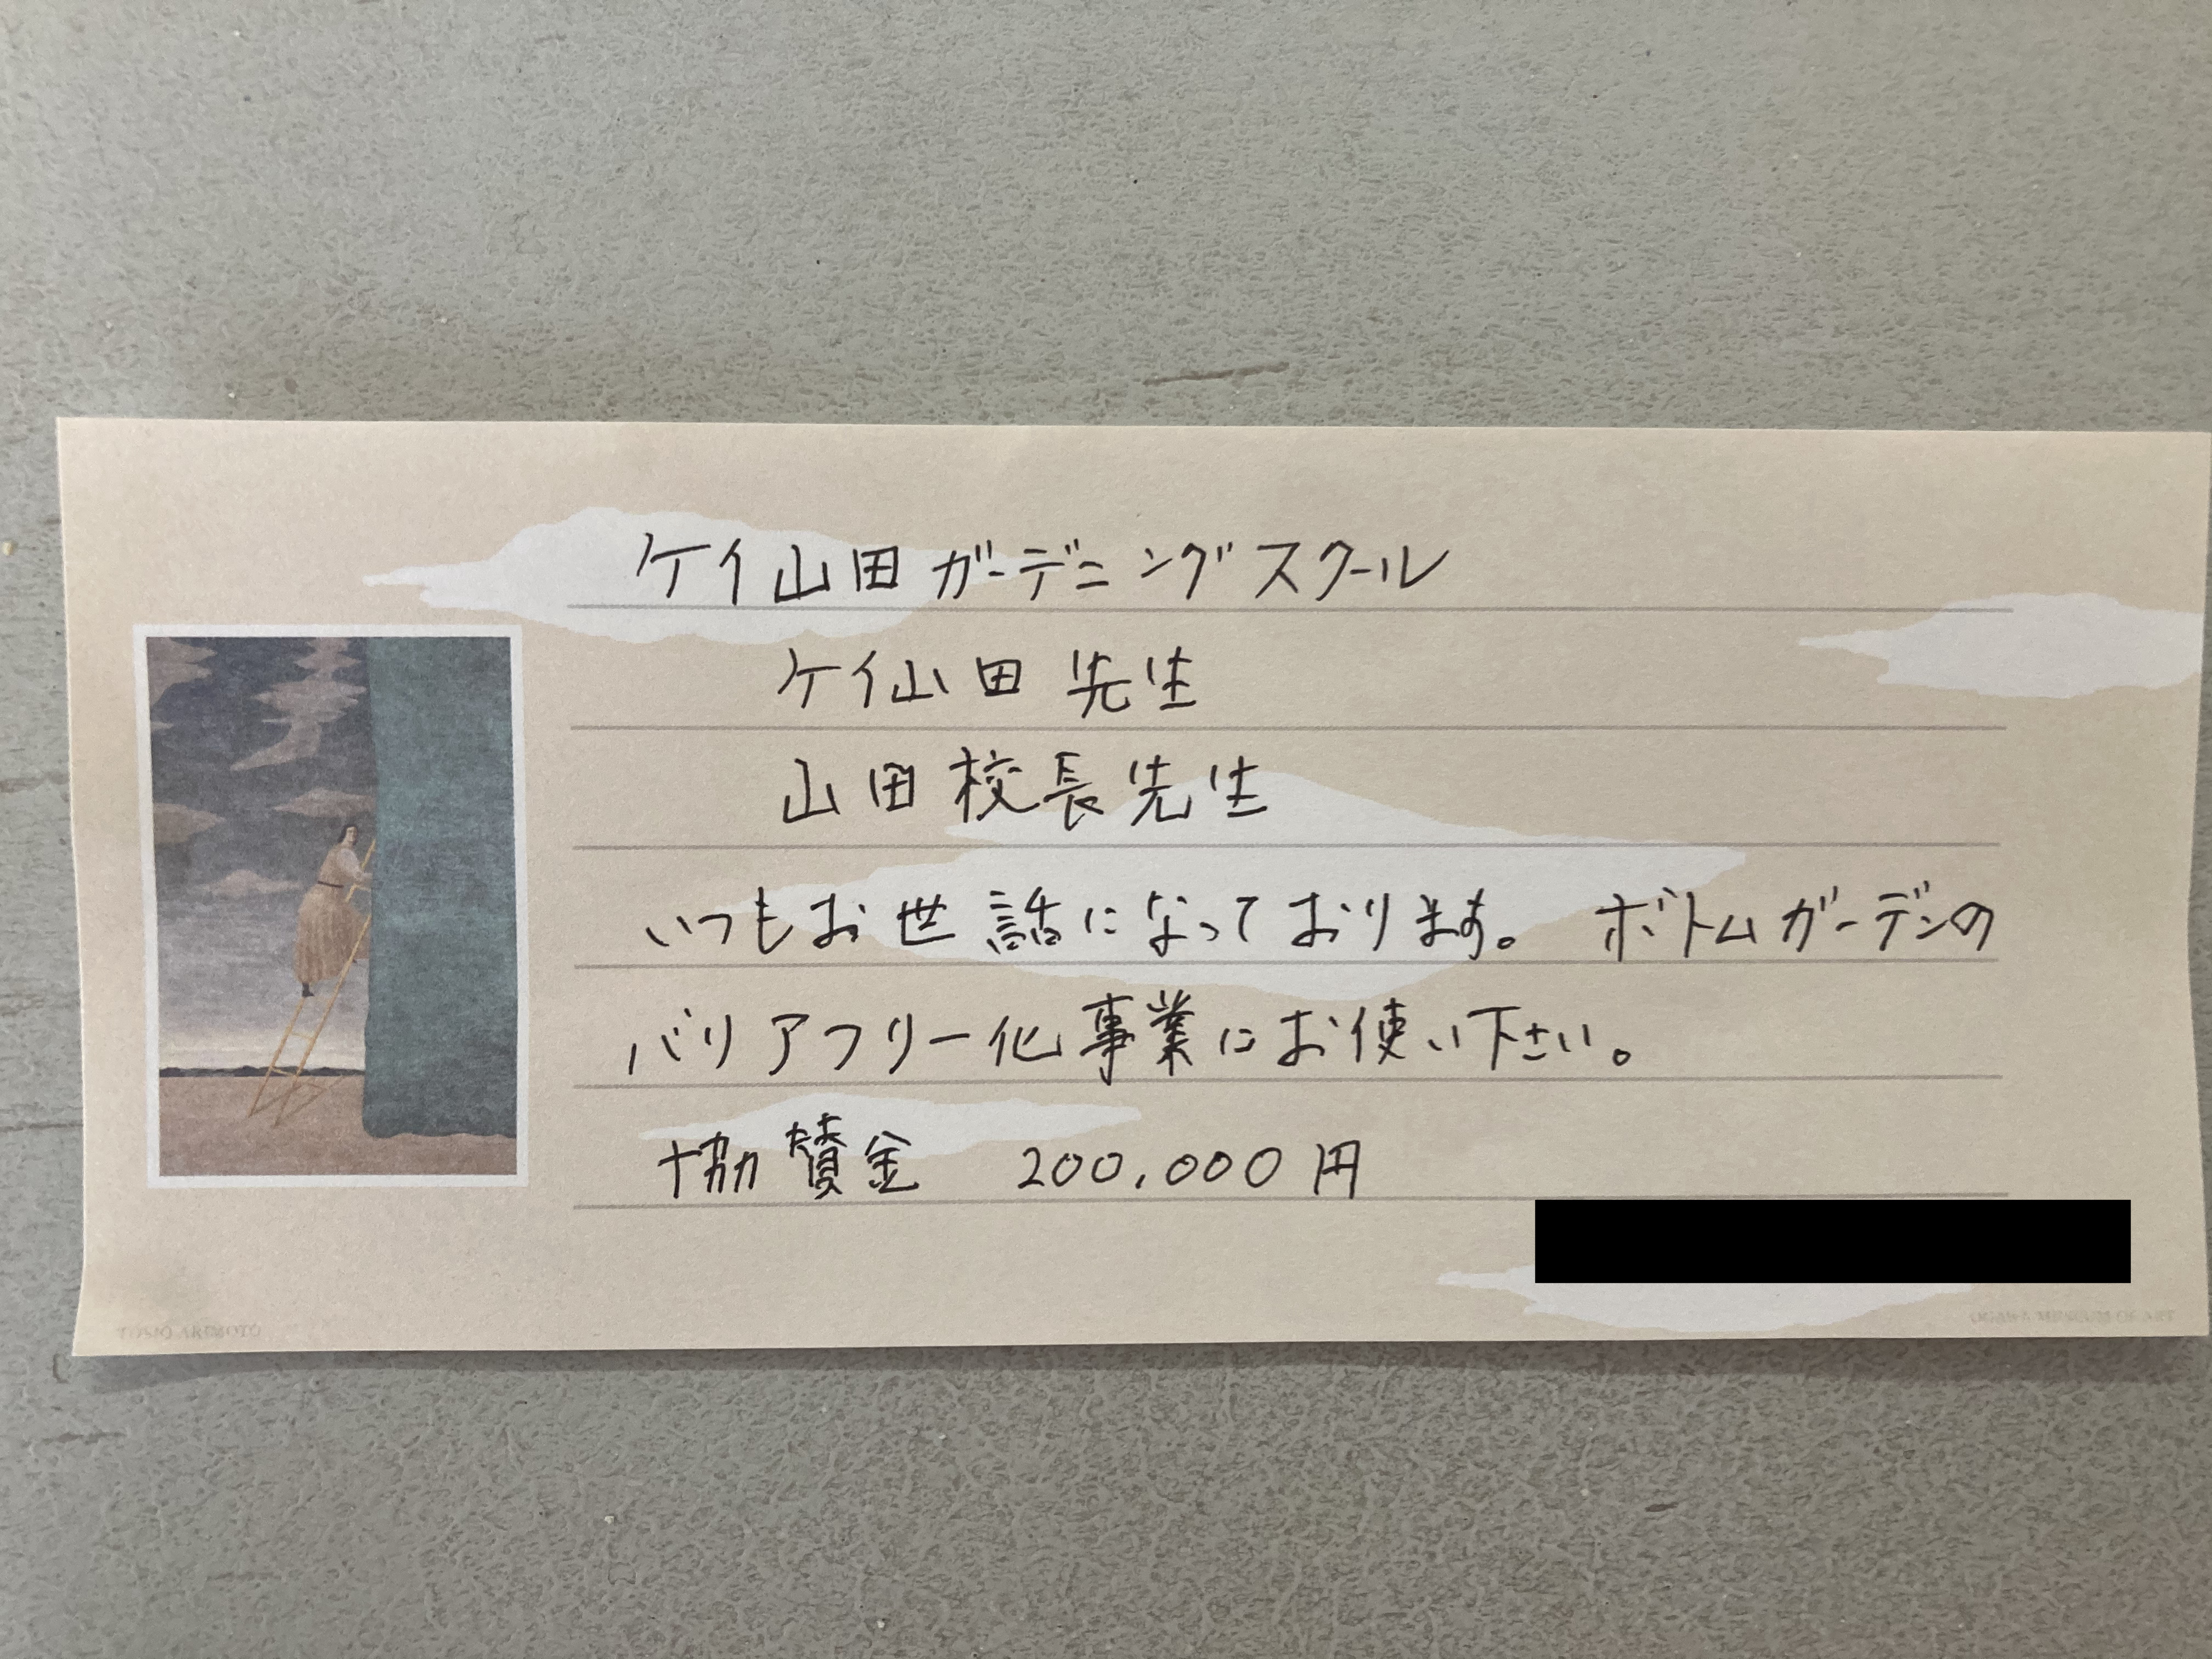 ケイ山田ガーデニングスクール
ケイ山田先生
山田校長先生
いつもお世話になっております。 ボトムガーデンの
バリアフリー化事業にお使い下さい。
協賛金 200,000円
TOSIO ARIMOTO
MUSEUM OF ART